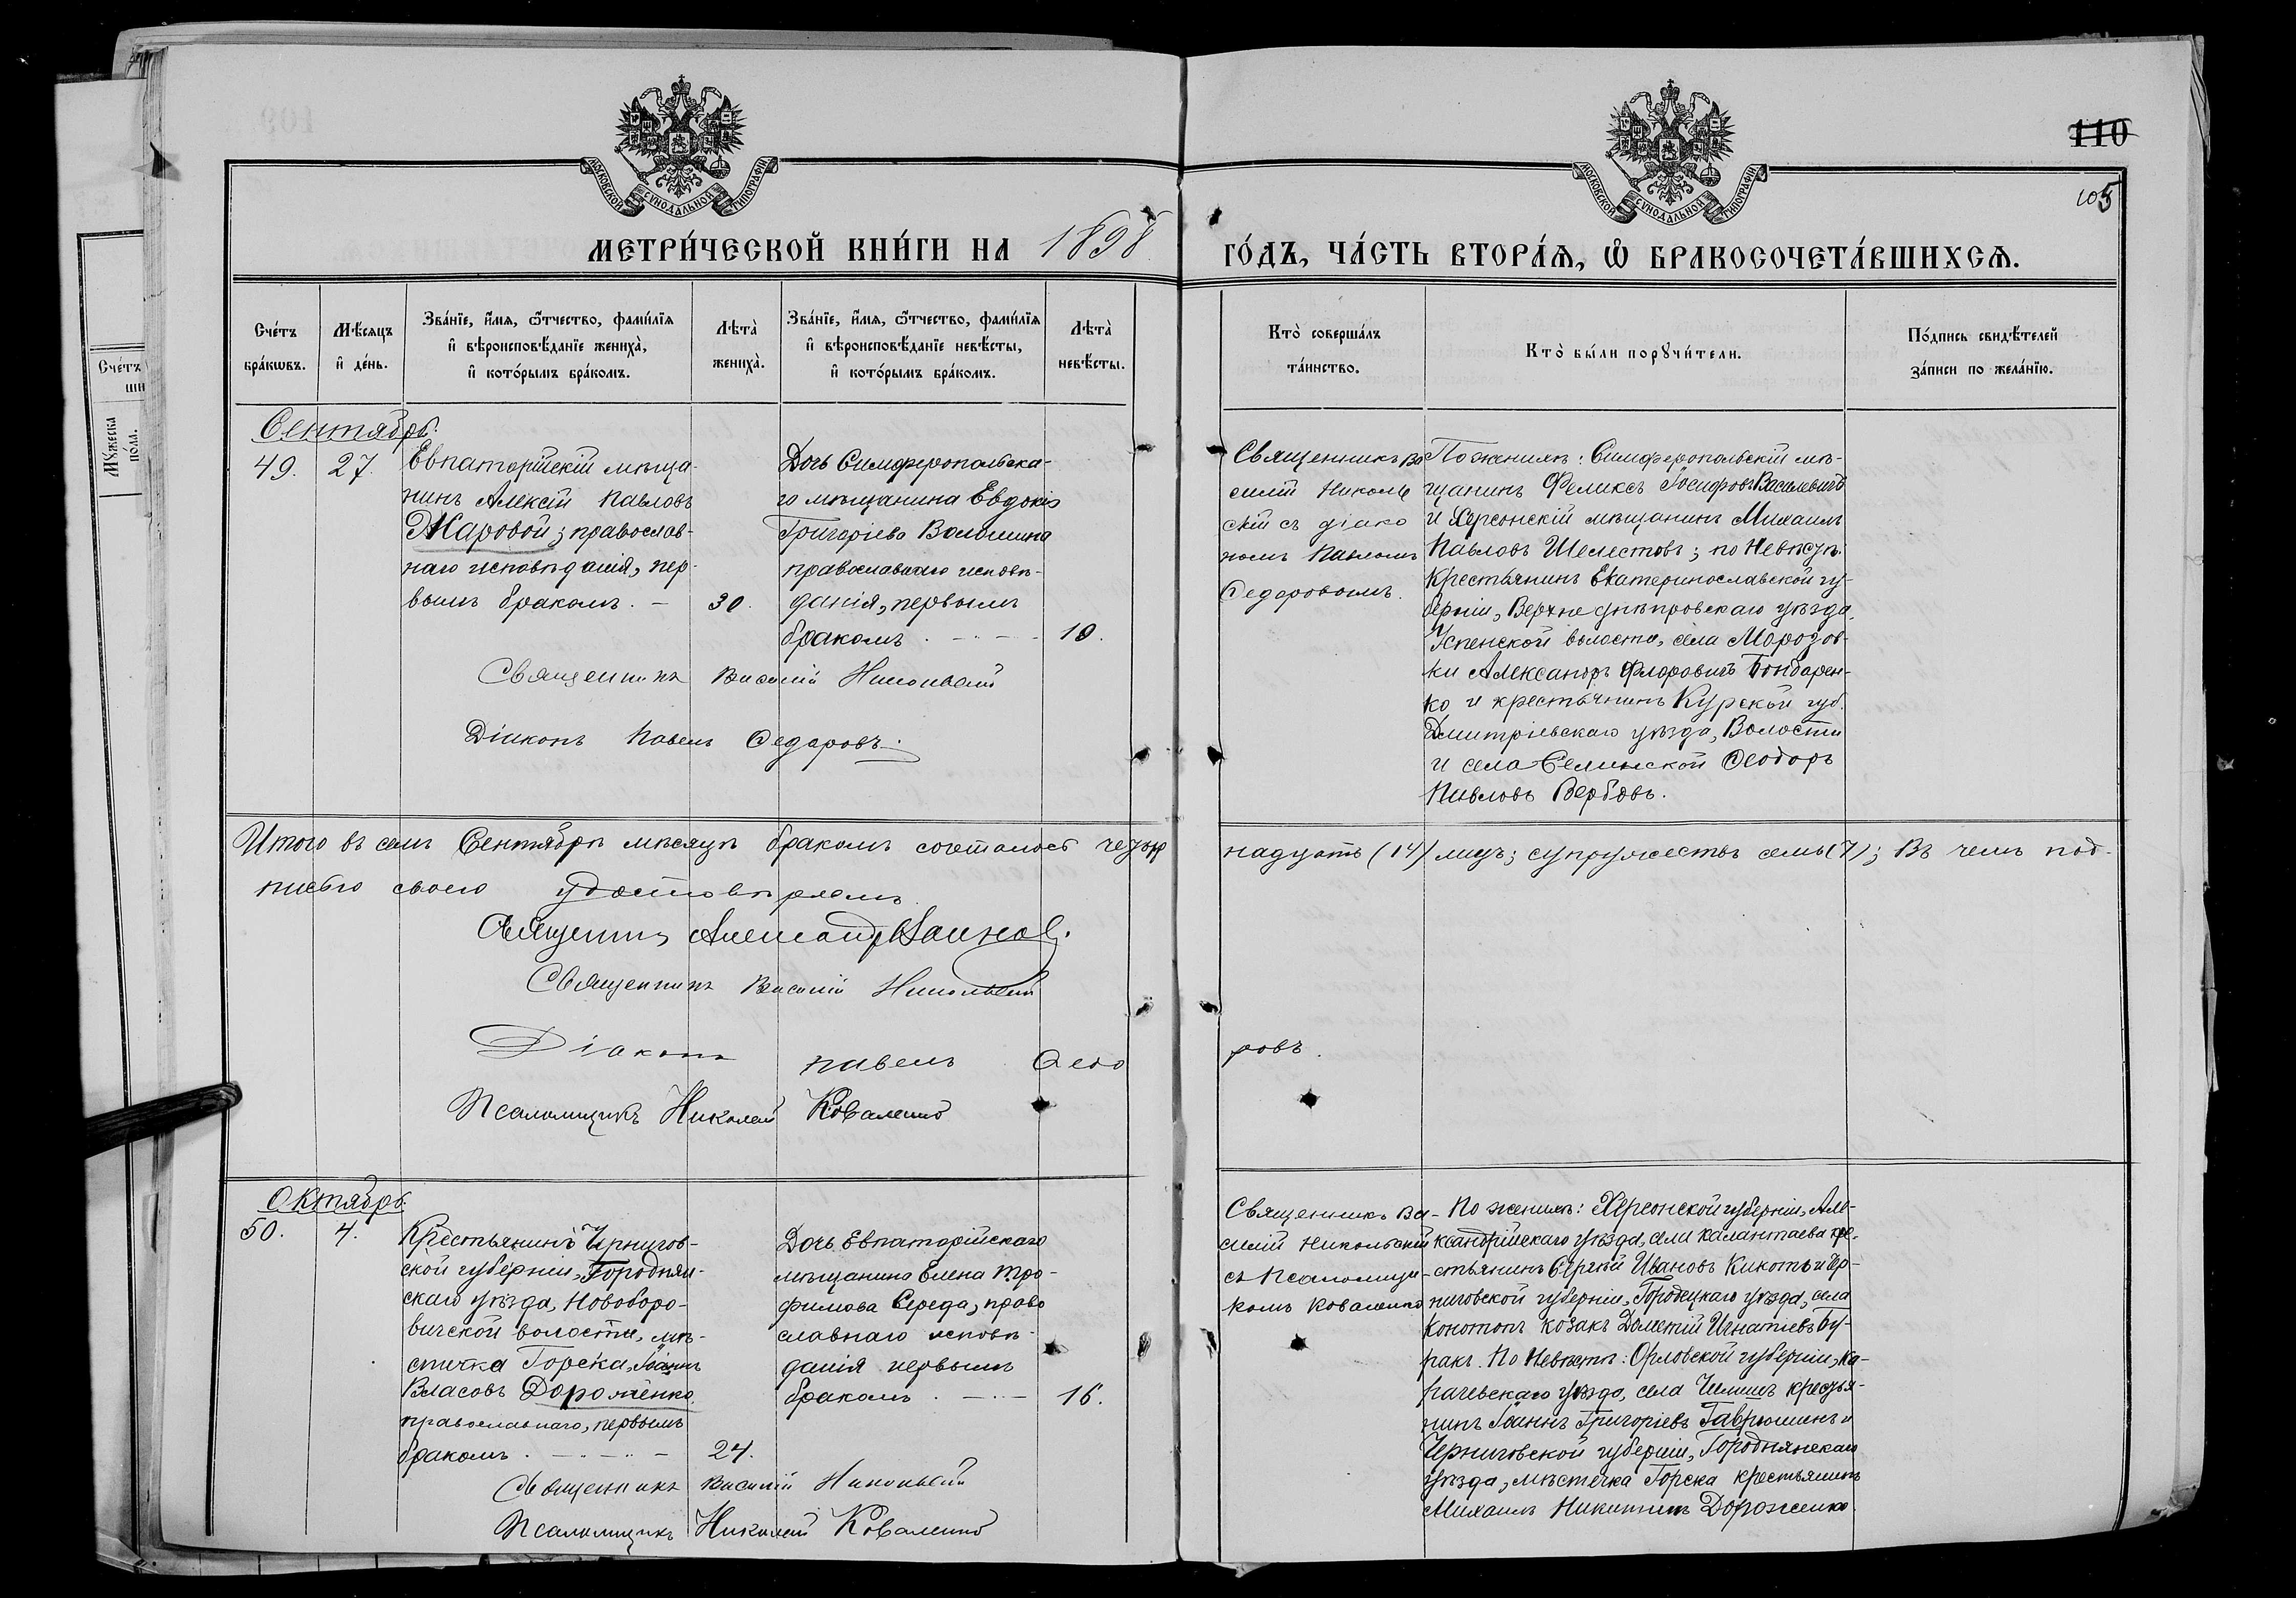 110
105
МОСКОВСКОЙ СѴНОДАЛЬНОЙ ТИПОГРАФІИ
МОСКОВСКОЙ СѴНОДАЛЬНОЙ ТИПОГРАФІИ
МЕТРИ́ЧЕСКОЙ КНИ́ГИ НА 1898 ГО́ДЪ, ЧА́СТЬ ВТОРА́Ѧ, Ѿ БРАКОСОЧЕТА́ВШИХСѦ.
Сче́тъ
бра́кѡвъ.
Мѣ́сяцъ
и҆ де́нь.
Зва́нїе, и҆́мѧ, ѻ҆́тчество, фами́лїѧ
и҆ вѣроисповѣ́данїе жениха̀,
и҆ кото́рымъ бра́комъ.
Лѣта̀
жениха̀.
Зва́нїе, и҆́мѧ, ѻ҆́тчество, фами́лїѧ
и҆ вѣроисповѣ́данїе невѣ́сты,
и҆ кото́рымъ бра́комъ.
Лѣта̀
невѣ́сты.
Кто̀ соверша́лъ
та́инство.
Кто̀ бы́ли порꙋчи́тели.
По́дпись свидѣ́телей
за́писи по жела́нїю.
Счетъ
Мꙋжеска
по́ла.
Сентябрь.
49.
27.
Евпаторійскій мѣща-
нинъ Алексій Павловъ
Жаровой; православ-
наго исповѣданія, пер-
вымъ бракомъ. –
30.
Дочь Симферопольска-
го мѣщанина Евдокія
Григоріева Волошина
православнаго исповѣ-
данія, первымъ
бракомъ. –
19.
Священникъ Ва
силій Николь
скій съ діако
номъ Павломъ
Ѳедоровымъ.
По женихѣ: Симферопольскій мѣ-
щанинъ Феликсъ Іосифовъ Василевичъ
и Херсонскій мѣщанинъ Михаилъ
Павловъ Шелестовъ; по Невѣстѣ:
Крестьянинъ Екатеринославской гу-
берніи, Верхнеднѣпровскаго уѣзда,
Успенской волости, села Морозов-
ки Александръ Флоровичъ Бондарен-
ко и крестьянинъ Курской губ.
Дмитріевскаго уѣзда, Волости
и села Селинской Ѳеодоръ
Павловъ Вербовъ.
Священникъ Василій Никольскій
Діаконъ Павелъ Ѳедоровъ.
Итого въ семъ Сентябрѣ мѣсяцѣ бракомъ сочеталось четыр
надцать (14) лицъ; супружествъ семь (7); Въ чемъ под-
писью своею удостовѣряемъ.
Священникъ Александръ
Священникъ Василій Никольскій
Діаконъ Павелъ Ѳедо
ровъ.
Псаломщикъ Николай Коваленко
Октябрь.
50.
4.
Крестьянинъ Чернигов-
ской губерніи, Городнян-
скаго уѣзда, Новоборо-
вичской волости, мѣ-
стечка Горска, Іоаннъ
Власовъ Дороженко,
православнаго, первымъ
бракомъ. –
24.
Дочь Евпаторійскаго
мѣщанина Елена Тро-
фимова Середа, право
славнаго исповѣ-
данія первымъ
бракомъ. –
16.
Священникъ Ва-
силій Никольскій
съ псаломщи-
комъ Коваленко
По женихѣ: Херсонской губерніи, Але-
ксандрійскаго уѣзда, села Калантаева кре-
стьянинъ Сергѣй Ивановъ Кикоть и Чер-
ниговской губерніи, Городецкаго уѣзда, села
Конотопъ козакъ Дометій Игнатіевъ Бу-
ракъ. По Невѣстѣ: Орловской губерніи, Ка-
рачевскаго уѣзда, села крестья-
нинъ Іоаннъ Григоріевъ Гаврюшинъ и
Черниговской губерніи, Городнянскаго
уѣзда, мѣстечка Горска крестьянинъ
Михаилъ Никитинъ Дороженко.
Священникъ Василій Никольскій
Псаломщикъ Николай Коваленко